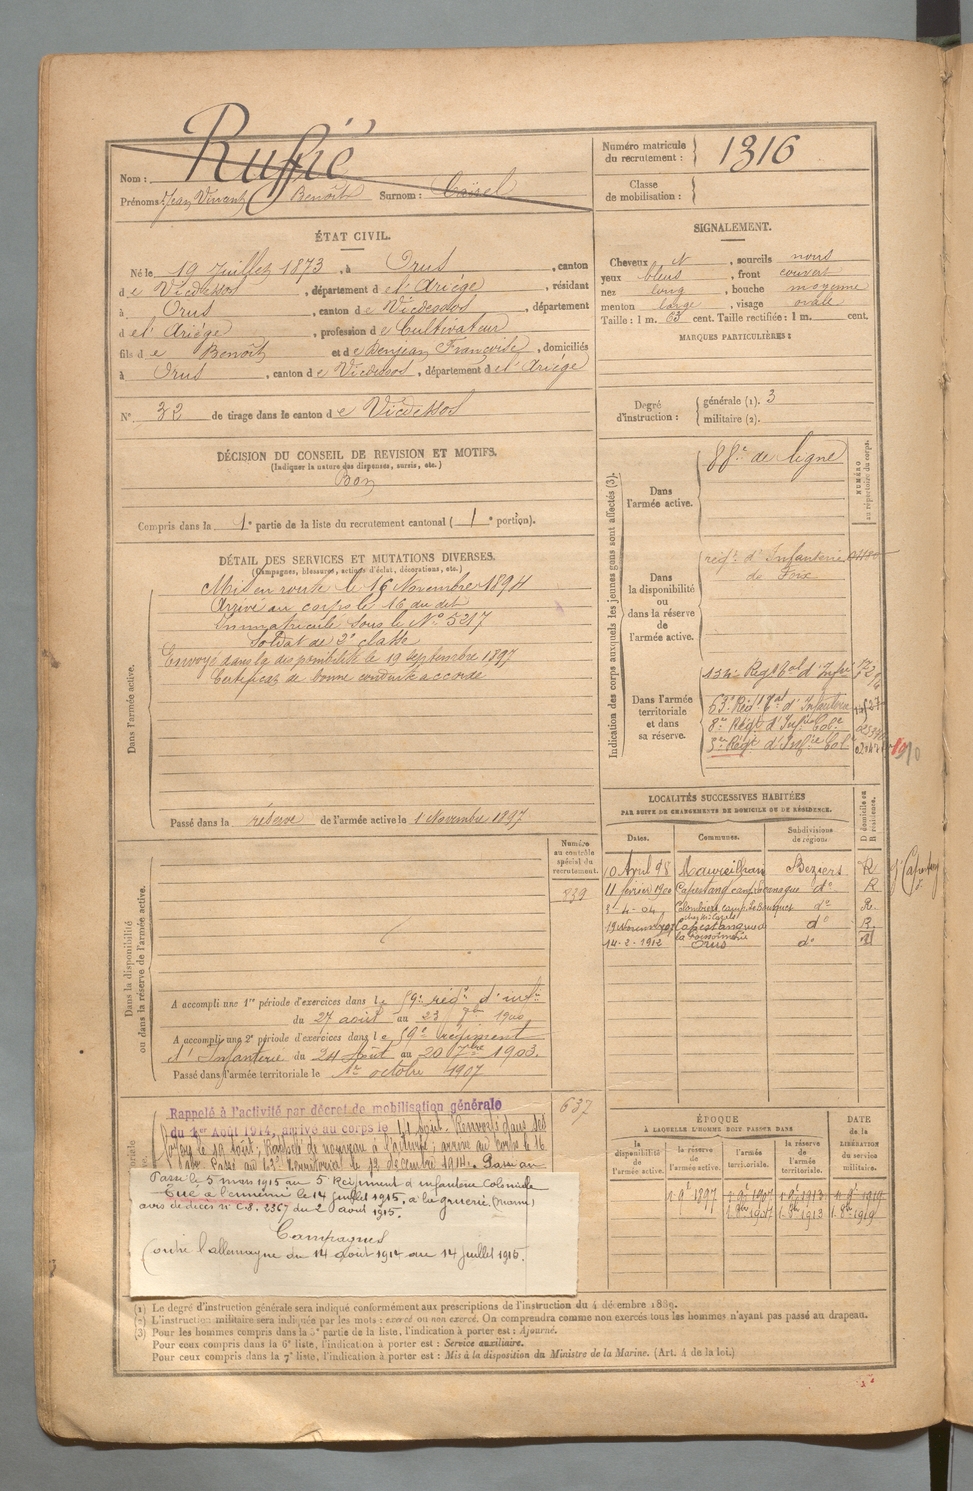 Nom : Ruffié
Prénoms : Jean Vincent Benoît Surnom : Cairel
Numéro matricule du recrutement : 1316
Classe de mobilisation :
ÉTAT CIVIL.
Né le 19 Juillet 1873, à Orus, canton
de Vicdessos, département de l'Ariége, résidant
à Orus, canton de Vicdessos, département
de l'Ariége, profession de Cultivateur
fils de Benoît et de Denjean Françoise, domiciliés
à Orus, canton de Vicdessos, département de l'Ariége
N° 32 de tirage dans le canton de Vicdessos
SIGNALEMENT.
Cheveux N, sourcils noirs
yeux bleus, front couvert
nez long, bouche moyenne
menton large, visage ovale
Taille : 1 m. 63 cent. Taille rectifiée : 1 m. cent.
MARQUES PARTICULIÈRES :
Degré d'instruction : générale (1). 3
militaire (2).
DÉCISION DU CONSEIL DE REVISION ET MOTIFS.
(Indiquer la nature des dispenses, sursis, etc.)
Bon
Compris dans la 1e partie de la liste du recrutement cantonal ( 1e portion).
DÉTAIL DES SERVICES ET MUTATIONS DIVERSES.
(Campagnes, blessures, actions d'éclat, décorations, etc.)
Dans l'armée active.
Mis en route le 16 Novembre 1894
Arrivé au corps le 16 du dit
Immatriculé sous le N° 5217
Soldat de 2e classe
Envoyé dans la disponibilité le 19 Septembre 1897
Certificat de bonne conduite accordé
Passé dans la réserve de l'armée active le 1 Novembre 1897
Indication des corps auxquels les jeunes gens sont affectés (3).
NUMÉRO au répertoire du corps.
Dans l'armée active.
88e de ligne
Dans la disponibilité ou dans la réserve de l'armée active.
régt d'Infanterie
de Foix
Dans l'armée territoriale et dans sa réserve.
134e Régt Tal d'Infie
63e Régt Tal d'Infanterie
8e Régt d'Infie Cole
5e Régt d'Infie Cole
LOCALITÉS SUCCESSIVES HABITÉES
PAR SUITE DE CHANGEMENTS DE DOMICILE OU DE RÉSIDENCE.
Dates. Communes. Subdivisions de région. D domicile ou R résidence.
10 Avril 98 Maureilhan Beziers R
11 février 1900 Capestang do R
8-4-04 Colombiers do R.
19 Novembre 07 Capestang do R.
14-2-1912 Orus do
Numéro au contrôle spécial du recrutement.
839
Dans la disponibilité ou dans la réserve de l'armée active.
A accompli une 1re période d'exercices dans le 59e régt d'infie
du 27 août au 23 7bre 1900
A accompli une 2e période d'exercices dans le 59e régiment
d'Infanterie du 24 Août au 20 7bre 1903.
Passé dans l'armée territoriale le 1er octobre 1907
637
Rappelé à l'activité par décret de mobilisation générale
du 1er Août 1914, arrivé au corps le 14 Août. Renvoyé dans ses
foyers le
Rappelé de nouveau à l'activité, arrivé au corps le 16
Passé au Territorial le 12 décembre 1914. Passé au
Passé le 5 mars 1915 au 5 Régiment d'infanterie Coloniale
Tué à l'ennemi le 14 juillet 1915, à la gruerie (marne)
avis de décès n° C.S. 2367 du 2 août 1915.
Campagnes
Contre l'allemagne du 14 août 1914 au 14 juillet 1915.
ÉPOQUE
À LAQUELLE L'HOMME DOIT PASSER DANS
DATE de la LIBÉRATION du service militaire.
la disponibilité de l'armée active. la réserve de l'armée active. l'armée territoriale. la réserve de l'armée territoriale.
1 9e 1897 1 9e 1907 1 9e 1913 1 9e 1919
1 8bre 1907 1 8bre 1913 1 8bre 1919
(1) Le degré d'instruction générale sera indiqué conformément aux prescriptions de l'instruction du 4 décembre 1889.
(2) L'instruction militaire sera indiquée par les mots : exercé ou non exercé. On comprendra comme non exercés tous les hommes n'ayant pas passé au drapeau.
(3) Pour les hommes compris dans la 5e partie de la liste, l'indication à porter est : Ajourné.
Pour ceux compris dans la 6e liste, l'indication à porter est : Service auxiliaire.
Pour ceux compris dans la 7e liste, l'indication à porter est : Mis à la disposition du Ministre de la Marine. (Art. 4 de la loi.)